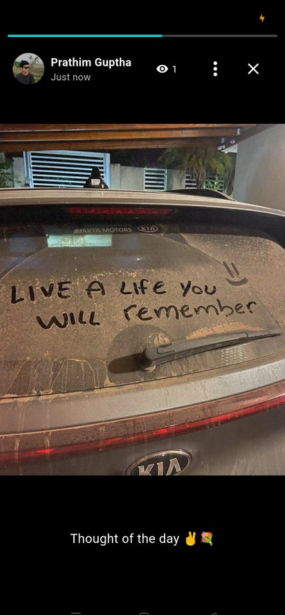 Prathim Guptha
Just now
1
KIA
LIVE A LIFE YOU
WILL remember
KIA
Thought of the day ✌💐